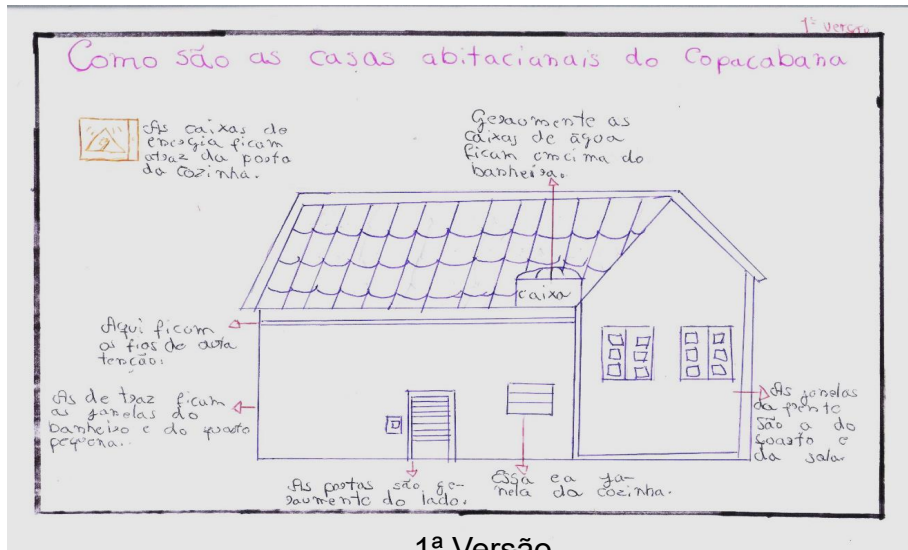 1ª verção
Como são as casas abitacianais do Copacabana
As caixas de
energia ficam
atraz da porta
da cozinha.
Geraumente as
caixas de ágoa
ficam emcima do
banheiro.
caixa
Aqui ficam
os fios de auta
tenção.
As de traz ficam
as janelas do
banheiro e do quarto
pequena..
As janelas
da frente
são a do
quarto e
da sala.
As portas são ge-
raumente do lado.
Essa ea ja-
nela da cozinha.
1ª Versão